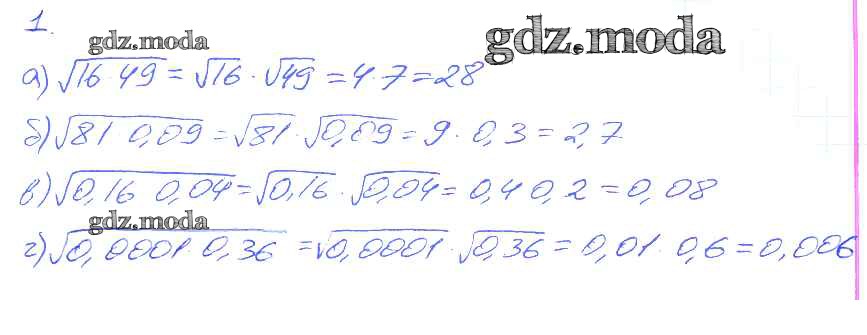 1.
gdz.moda
gdz.moda
а) √16·49 = √16 · √49 = 4·7 = 28
б) √81·0,09 = √81 · √0,09 = 9 · 0,3 = 2,7
в) √0,16 0,04 = √0,16 · √0,04 = 0,4 0,2 = 0,08
gdz.moda
г) √0,0001·0,36 = √0,0001 · √0,36 = 0,01· 0,6 = 0,006